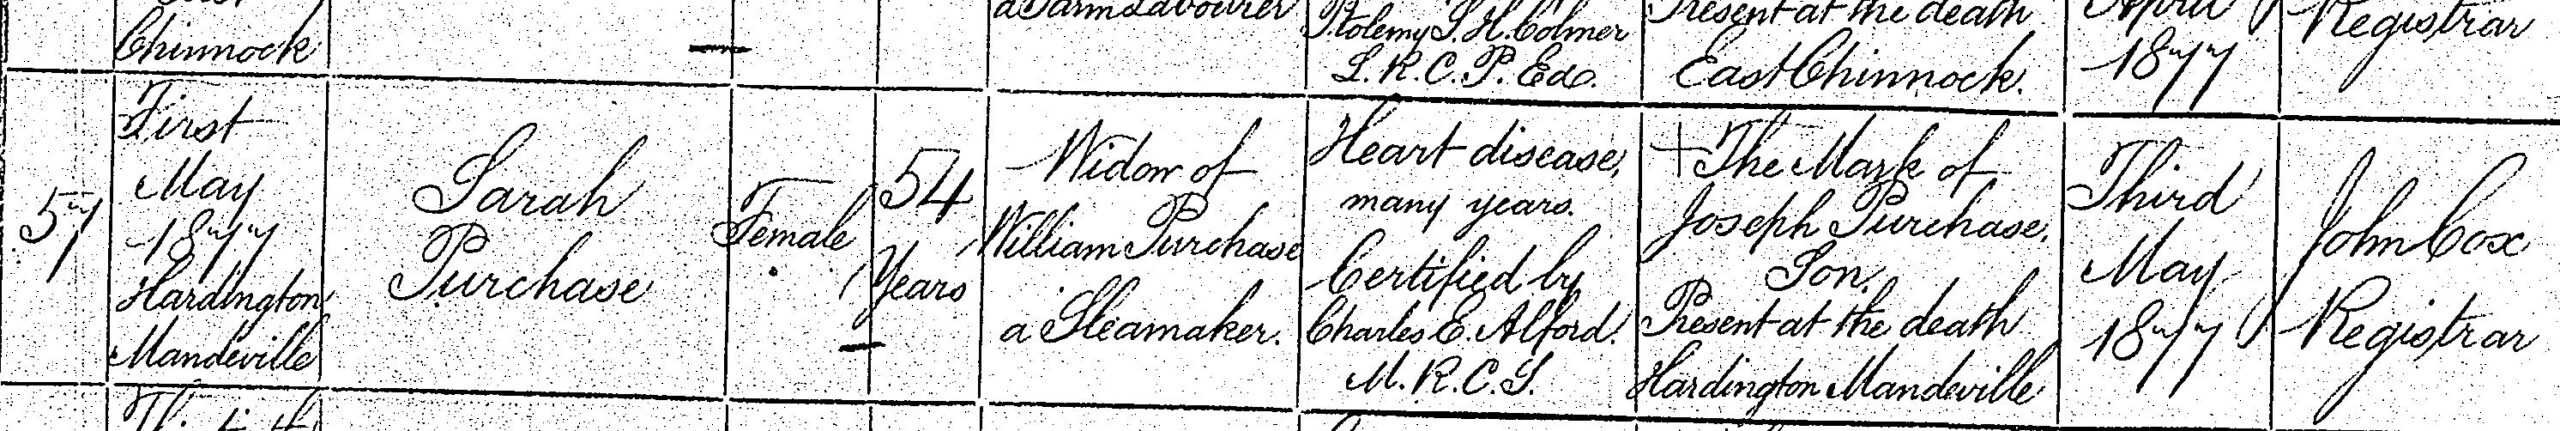 Chinnock
a Farm Labourer
Ptolemy S. H. Colmer
L.R.C.P. Ed.
Present at the death
East Chinnock.
April
1877
Registrar
57
First
May
1877
Hardington
Mandeville
Sarah
Purchase
Female
54
Years
Widow of
William Purchase
a Sleamaker.
Heart disease,
many years.
Certified by
Charles E. Alford.
M.R.C.S.
+ The Mark of
Joseph Purchase.
Son.
Present at the death
Hardington Mandeville
Third
May
1877
John Cox
Registrar